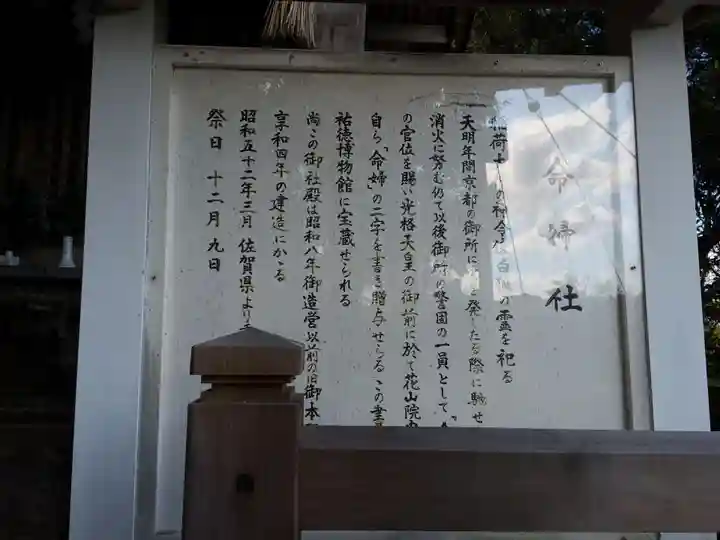 命婦社
稲荷大神の神令 白狐の霊を祀る
天明年間京都の御所に 発したる際に馳せ
消火に努む仍て以後御所の警固の一員として「
の官位を賜い光格天皇の御前に於て花山院内
自ら「命婦」の二字を書き贈与せらる この書
祐徳博物館に宝蔵せられる
尚この御社殿は昭和八年御造営以前の旧御本
享和四年の建造にかゝる
昭和五十二年三月 佐賀県より
祭日 十二月九日